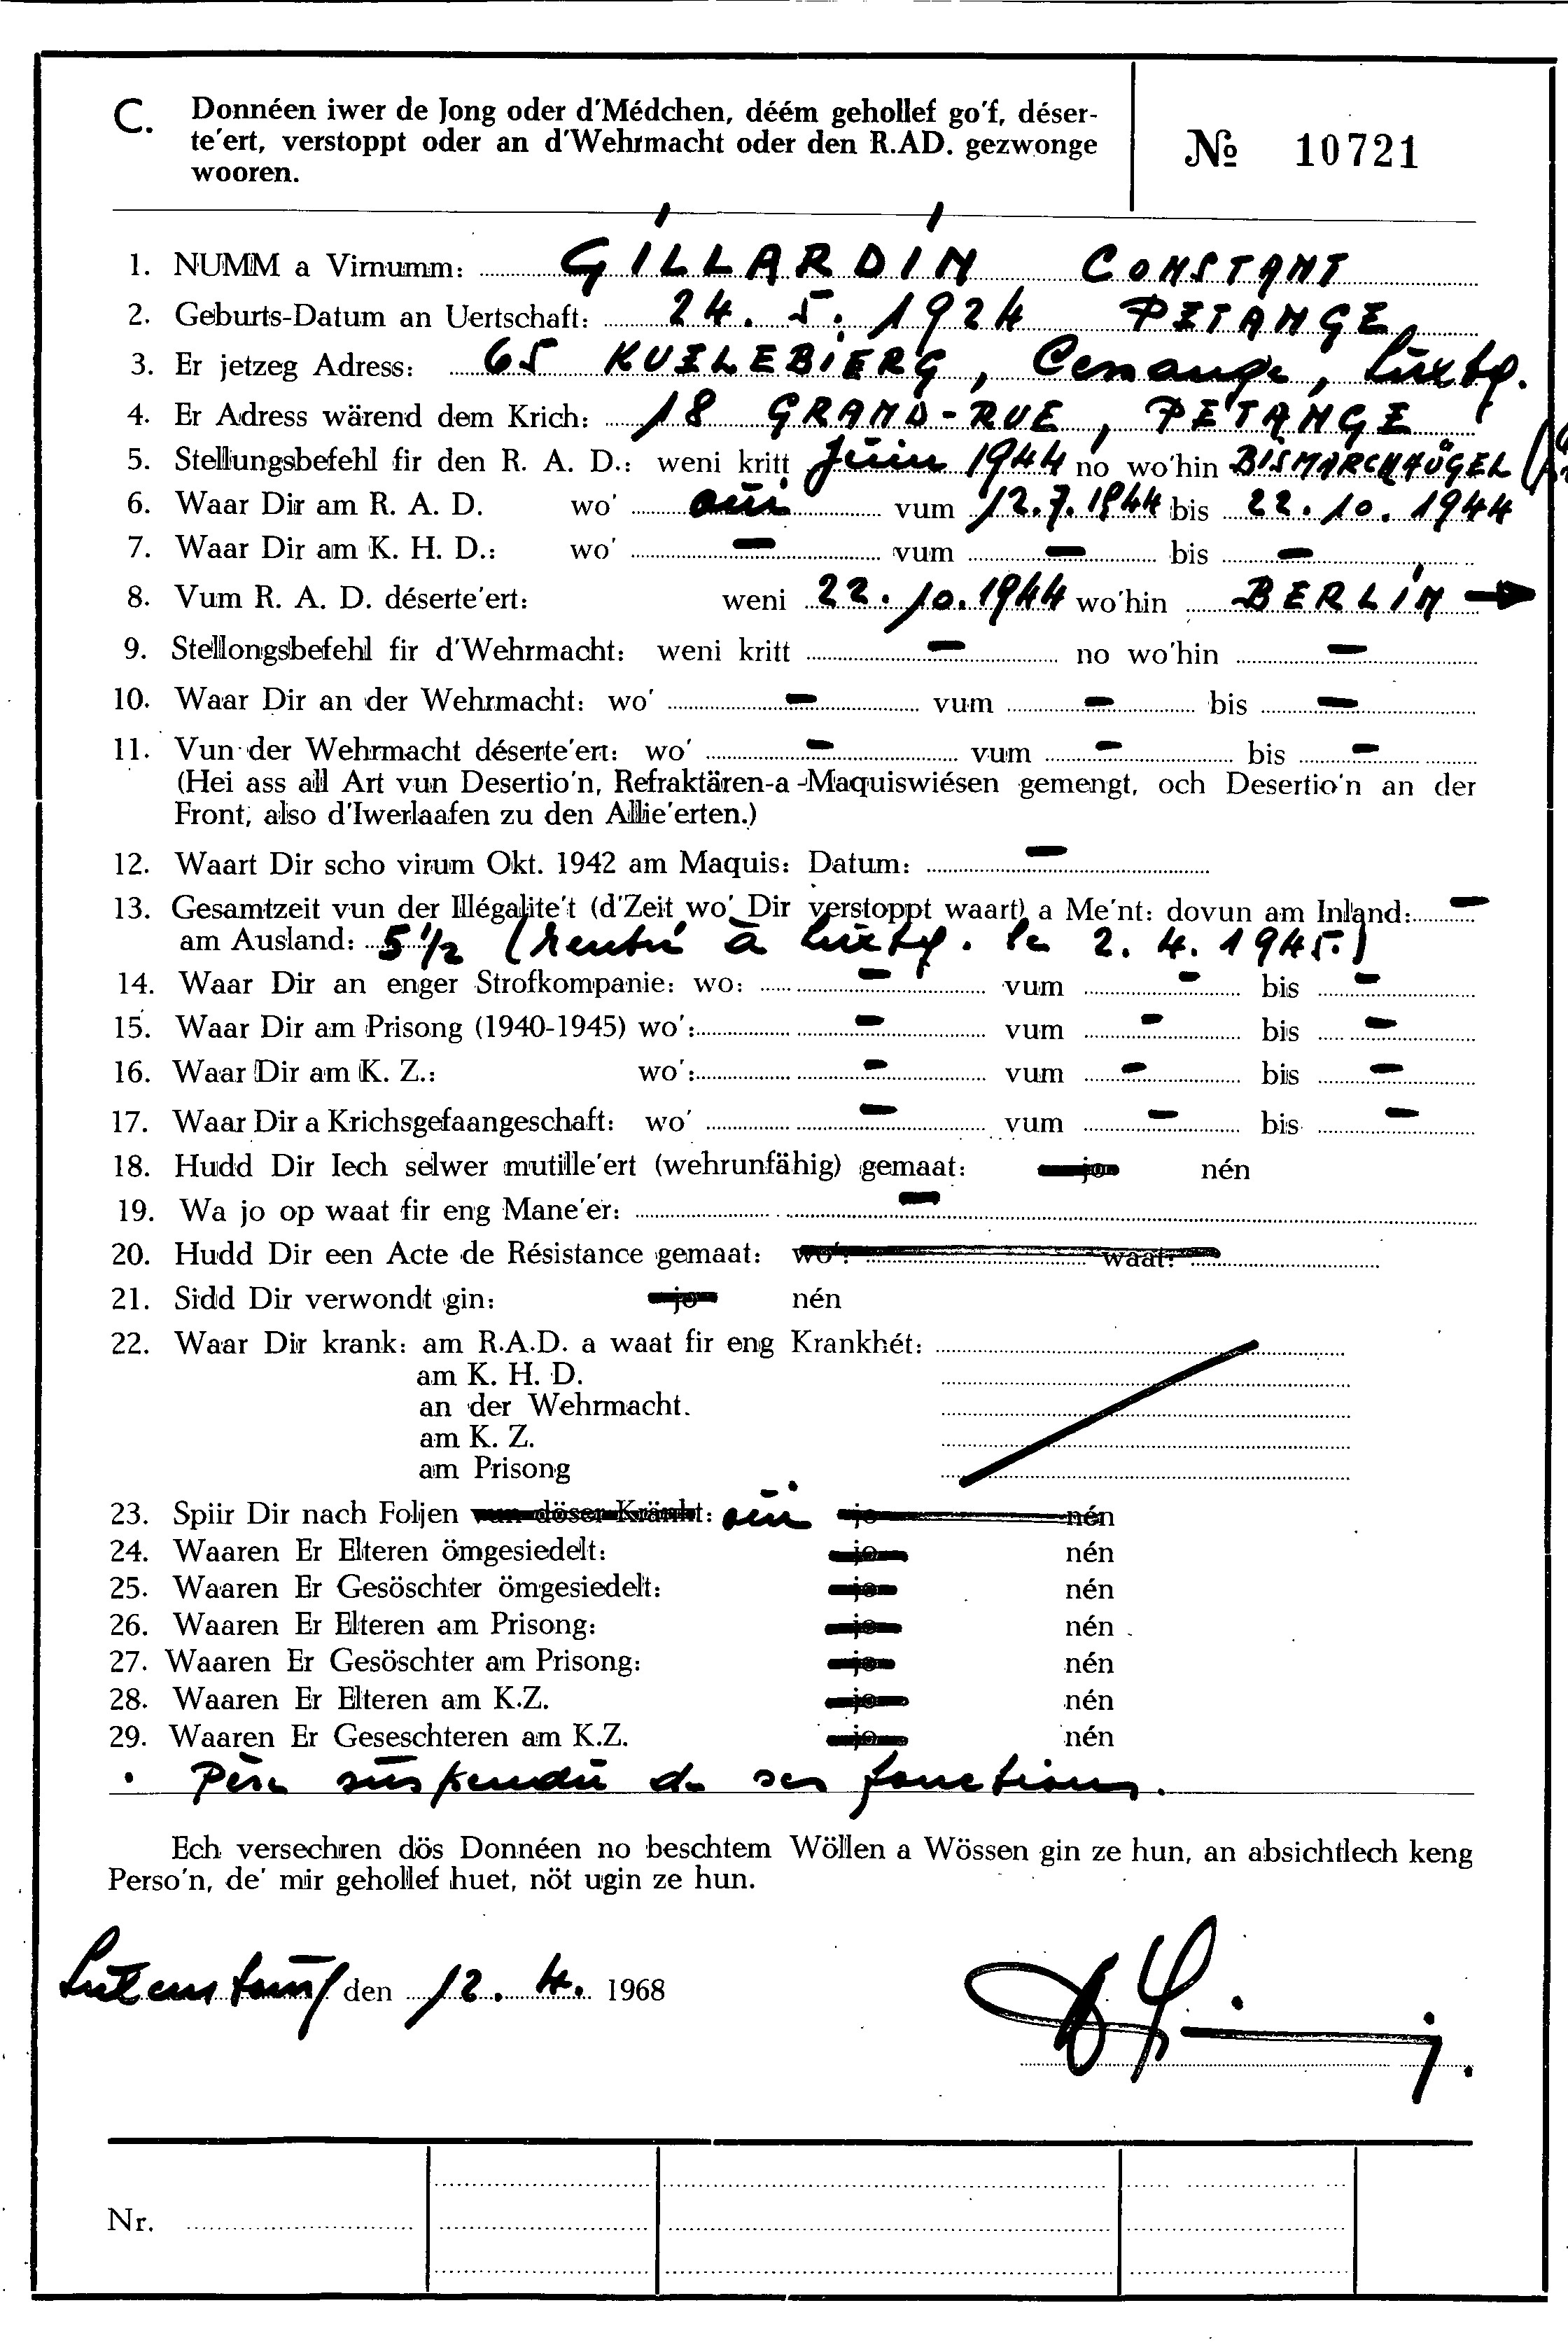 C. Donnéen iwer de Jong oder d'Médchen, déém gehollef go'f, déser-
te'ert, verstoppt oder an d'Wehrmacht oder den R.AD. gezwonge
wooren.
№ 10721
1. NUMM a Virnumm: GILLARDIN CONSTANT
2. Geburts-Datum an Uertschaft: 24. 5. 1924 PETANGE
3. Er jetzeg Adress: 65 KUELEBIERG, Cessange, Luxbg.
4. Er Adress wärend dem Krich: 18 GRAND-RUE, PETANGE
5. Stellungsbefehl fir den R. A. D.: weni kritt Juin 1944 no wo'hin BISMARCKHÜGEL
6. Waar Dir am R. A. D. wo' oui vum 12.7.1944 bis 22.10.1944
7. Waar Dir am K. H. D.: wo' — vum — bis —
8. Vum R. A. D. déserte'ert: weni 22.10.1944 wo'hin BERLIN →
9. Stellongsbefehl fir d'Wehrmacht: weni kritt — no wo'hin —
10. Waar Dir an der Wehrmacht: wo' — vum — bis —
11. Vun der Wehrmacht déserte'ert: wo' — vum — bis —
(Hei ass all Art vun Desertio'n, Refraktären-a-Maquiswiésen gemengt, och Desertio'n an der
Front, also d'Iwerlaafen zu den Allie'erten.)
12. Waart Dir scho virum Okt. 1942 am Maquis: Datum: —
13. Gesamtzeit vun der Illégalite't (d'Zeit wo' Dir verstoppt waart) a Me'nt: dovun am Inland: —
am Ausland: 5 1/2 (rentré à Luxbg. le 2. 4. 1945.)
14. Waar Dir an enger Strofkompanie: wo: — vum — bis —
15. Waar Dir am Prisong (1940-1945) wo': — vum — bis —
16. Waar Dir am K. Z.: wo': — vum — bis —
17. Waar Dir a Krichsgefaangeschaft: wo' — vum — bis —
18. Hudd Dir Iech selwer mutille'ert (wehrunfähig) gemaat: jo nén
19. Wa jo op waat fir eng Mane'er: —
20. Hudd Dir een Acte de Résistance gemaat: wo': waat:
21. Sidd Dir verwondt gin: jo nén
22. Waar Dir krank: am R.A.D. a waat fir eng Krankhét:
am K. H. D.
an der Wehrmacht.
am K. Z.
am Prisong
23. Spiir Dir nach Foljen vun döser Kränkt: oui jo nén
24. Waaren Er Elteren ömgesiedelt: jo nén
25. Waaren Er Gesöschter ömgesiedelt: jo nén
26. Waaren Er Elteren am Prisong: jo nén
27. Waaren Er Gesöschter am Prisong: jo nén
28. Waaren Er Elteren am K.Z. jo nén
29. Waaren Er Geseschteren am K.Z. jo nén
. Père suspendu de ses fonctions.
Ech versechren dös Donnéen no beschtem Wöllen a Wössen gin ze hun, an absichtlech keng
Perso'n, de' mir gehollef huet, nöt ugin ze hun.
Luxembourg den 12. 4. 1968
Nr.